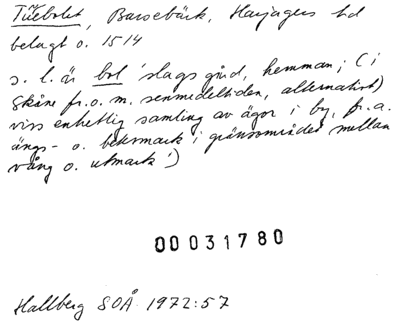 Tūebolet, Barsebäck, Harjagers hd
belagt o. 1514
s. l. är bol 'slags gård, hemman; (i
Skåne fr.o.m. senmedeltiden, alternativt)
viss enhetlig samling av ägor i by, fr.a.
ängs- o. betesmark i gränsområdet mellan
vång o. utmark')
00031780
Hallberg SOÅ 1972:57